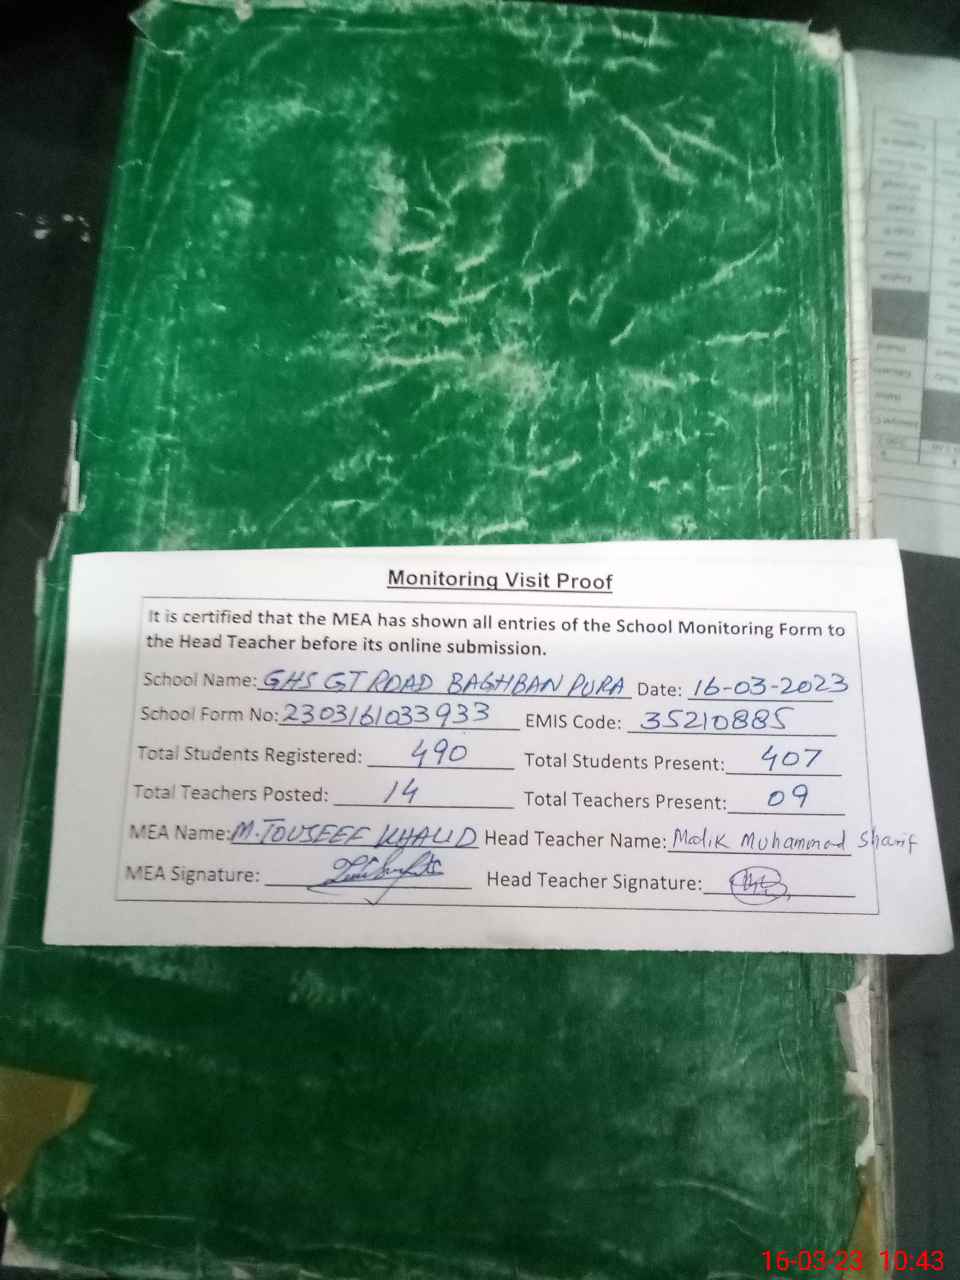 Monitoring Visit Proof
It is certified that the MEA has shown all entries of the School Monitoring Form to
the Head Teacher before its online submission.
School Name: GHS GT ROAD BAGHBAN PURA Date: 16-03-2023
School Form No: 2303161033933 EMIS Code: 35210885
Total Students Registered: 490 Total Students Present: 407
Total Teachers Posted: 14 Total Teachers Present: 09
MEA Name: M. TOUSEEF KHALID Head Teacher Name: Malik Muhammad Sharif
MEA Signature: Head Teacher Signature:
16-03-23 10:43